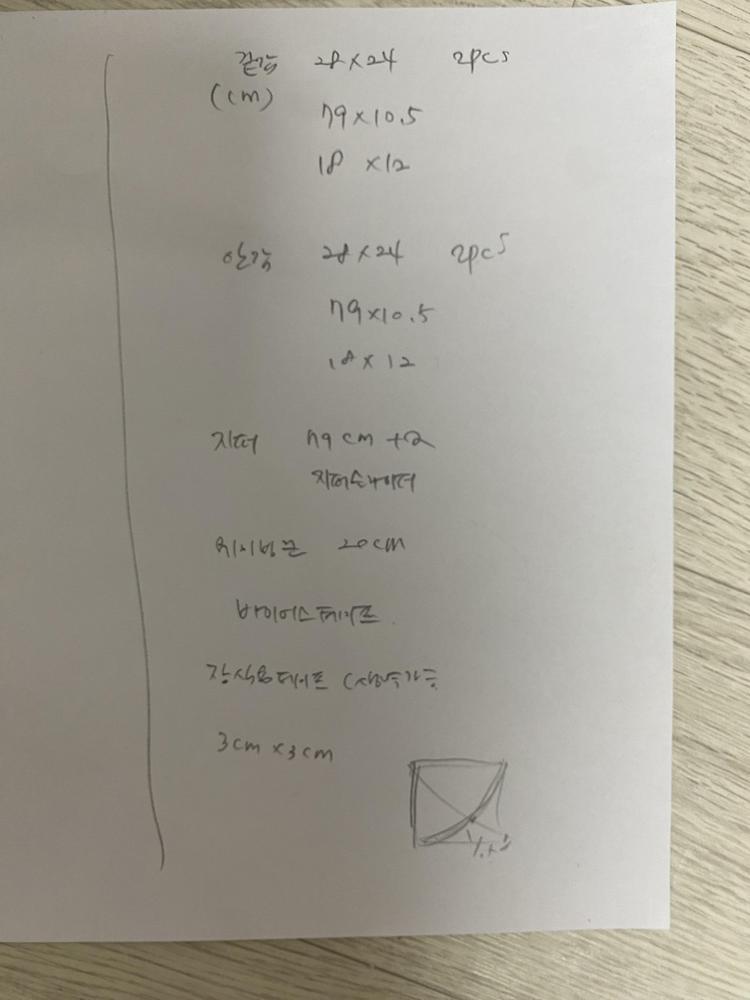 겉감 28×24 2pcs
(cm)
79×10.5
18 ×12
안감 28×24 2pcs
79×10.5
18×12
지퍼 79cm +2
지퍼슬라이더
웨이빙끈 20cm
바이어스테이프
장식용테이프 (생략가능
3cm ×3cm